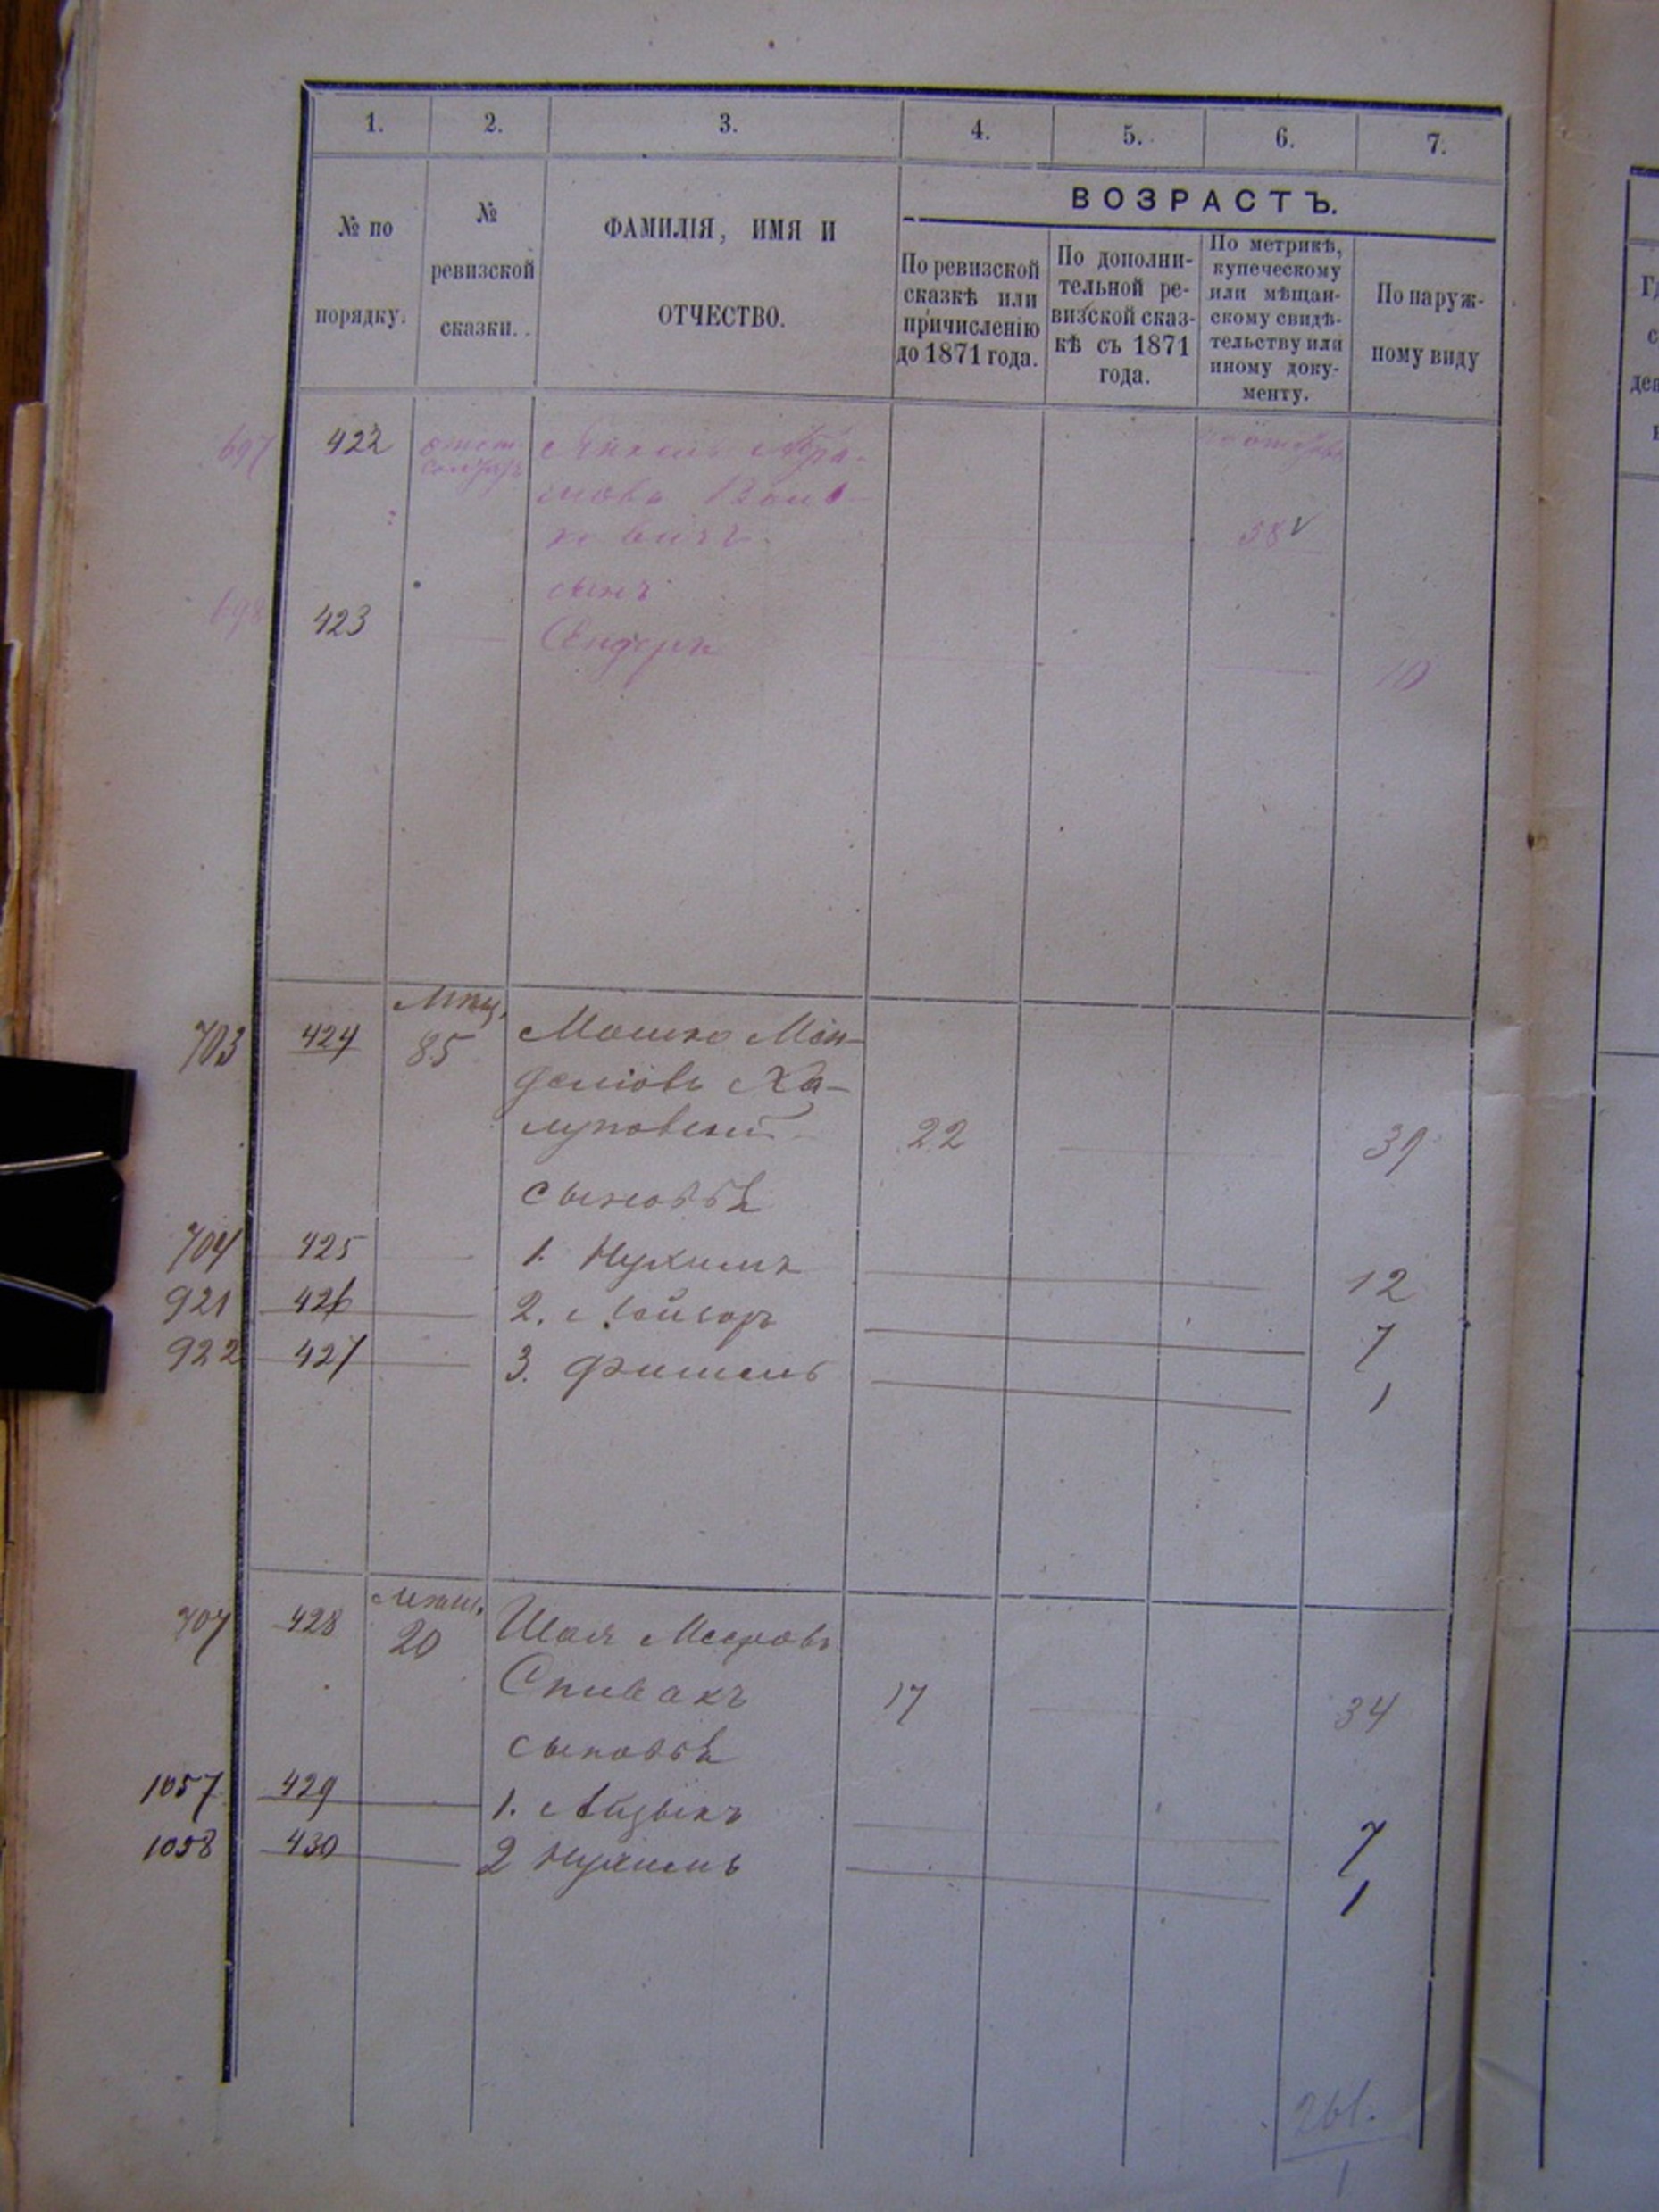 1. 2. 3. 4. 5. 6. 7.
№ по порядку.
№ ревизской сказки.
ФАМИЛІЯ, ИМЯ И
ОТЧЕСТВО.
ВОЗРАСТЪ.
По ревизской
сказкѣ или
причисленію
до 1871 года.
По дополни-
тельной ре-
визской сказ-
кѣ съ 1871
года.
По метрикѣ,
купеческому
или мѣщан-
скому свидѣ-
тельству или
иному доку-
менту.
По наруж-
ному виду
697 422 отст.
58
сынъ
698 423 Сендеръ 10
мѣщ.
703 424 85 Мошко Мен-
деліовъ Ха-
луповскій 22 39
сыновья
704 425 1. Нухимъ 12
921 426 2. Лейзоръ 7
922 427 3. Фишель 1
мѣщ.
707 428 20 Шая Мееровъ
Спивакъ 17 34
сыновья
1057 429 1. Айзыкъ 7
1058 430 2 Нухимъ 1
261.
1